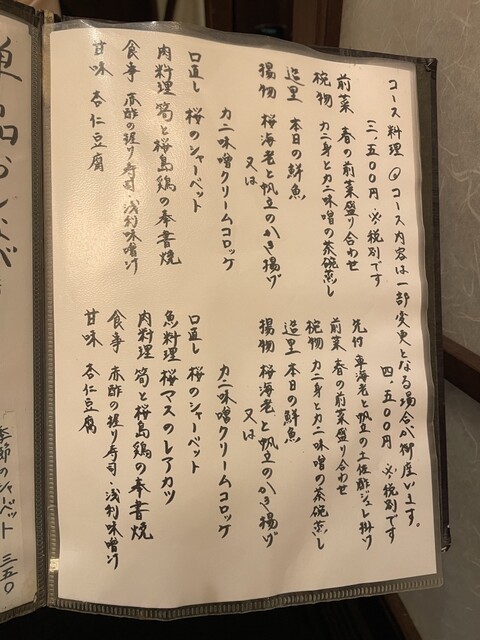 コース料理 @コース内容は一部変更となる場合が御座います。
三、五〇〇円 ※税別です
前菜 春の前菜盛り合わせ
椀物 カニ身とカニ味噌の茶碗蒸し
造里 本日の鮮魚
揚物 桜海老と帆立のかき揚げ
又は
カニ味噌クリームコロッケ
口直し 桜のシャーベット
肉料理 筍と桜島鶏の奉書焼
食事 赤酢の握り寿司・浅利味噌汁
甘味 杏仁豆腐
四、五〇〇円 ※税別です
先付 車海老と帆立の土佐酢ジュレ掛け
前菜 春の前菜盛り合わせ
椀物 カニ身とカニ味噌の茶碗蒸し
造里 本日の鮮魚
揚物 桜海老と帆立のかき揚げ
又は
カニ味噌クリームコロッケ
口直し 桜のシャーベット
魚料理 桜マスのレアカツ
肉料理 筍と桜島鶏の奉書焼
食事 赤酢の握り寿司・浅利味噌汁
甘味 杏仁豆腐
季節のシャーベット 三五〇